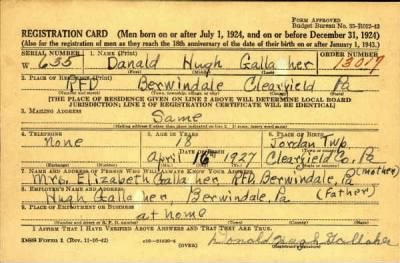 FORM APPROVED
Budget Bureau No. 33-R012-42
REGISTRATION CARD (Men born on or after July 1, 1924, and on or before December 31, 1924)
(Also for the registration of men as they reach the 18th anniversary of the date of their birth on or after January 1, 1943.)
SERIAL NUMBER 1. NAME (Print) ORDER NUMBER
W. 635 Danald Hugh Gallagher 13017
(First) (Middle) (Last)
2. PLACE OF RESIDENCE (Print)
RFD Berwindale Clearfield Pa
(Number and street) (County) (State)
[THE PLACE OF RESIDENCE GIVEN ON LINE 2 ABOVE WILL DETERMINE LOCAL BOARD
JURISDICTION; LINE 2 OF REGISTRATION CERTIFICATE WILL BE IDENTICAL]
3. MAILING ADDRESS
Same
4. TELEPHONE 5. AGE IN YEARS 6. PLACE OF BIRTH
None 18 Jordan Twp.
DATE OF BIRTH
April 16 1927 Clearfield Co. Pa
7. NAME AND ADDRESS OF PERSON WHO WILL ALWAYS KNOW YOUR ADDRESS
Mrs. Elizabeth Gallagher RFD, Berwindale, Pa (mother)
8. EMPLOYER'S NAME AND ADDRESS
Hugh Gallagher, Berwindale, Pa (Father)
9. PLACE OF EMPLOYMENT OR BUSINESS
at home
I AFFIRM THAT I HAVE VERIFIED ABOVE ANSWERS AND THAT THEY ARE TRUE.
DSS Form 1 (Rev. 11-16-42) Donald Hugh Gallaher